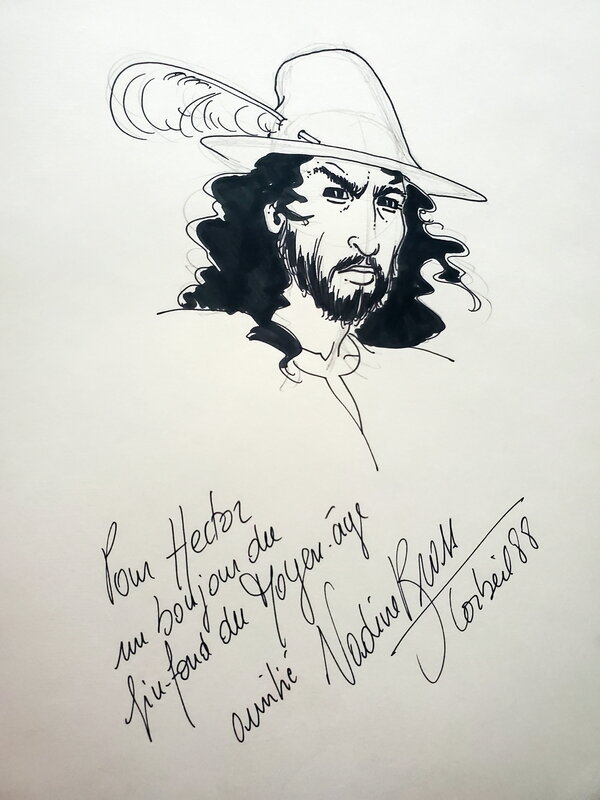 Pour Hector
un bonjour du
fin-fond du Moyen-âge
amitié Nadine
Corbeil 88